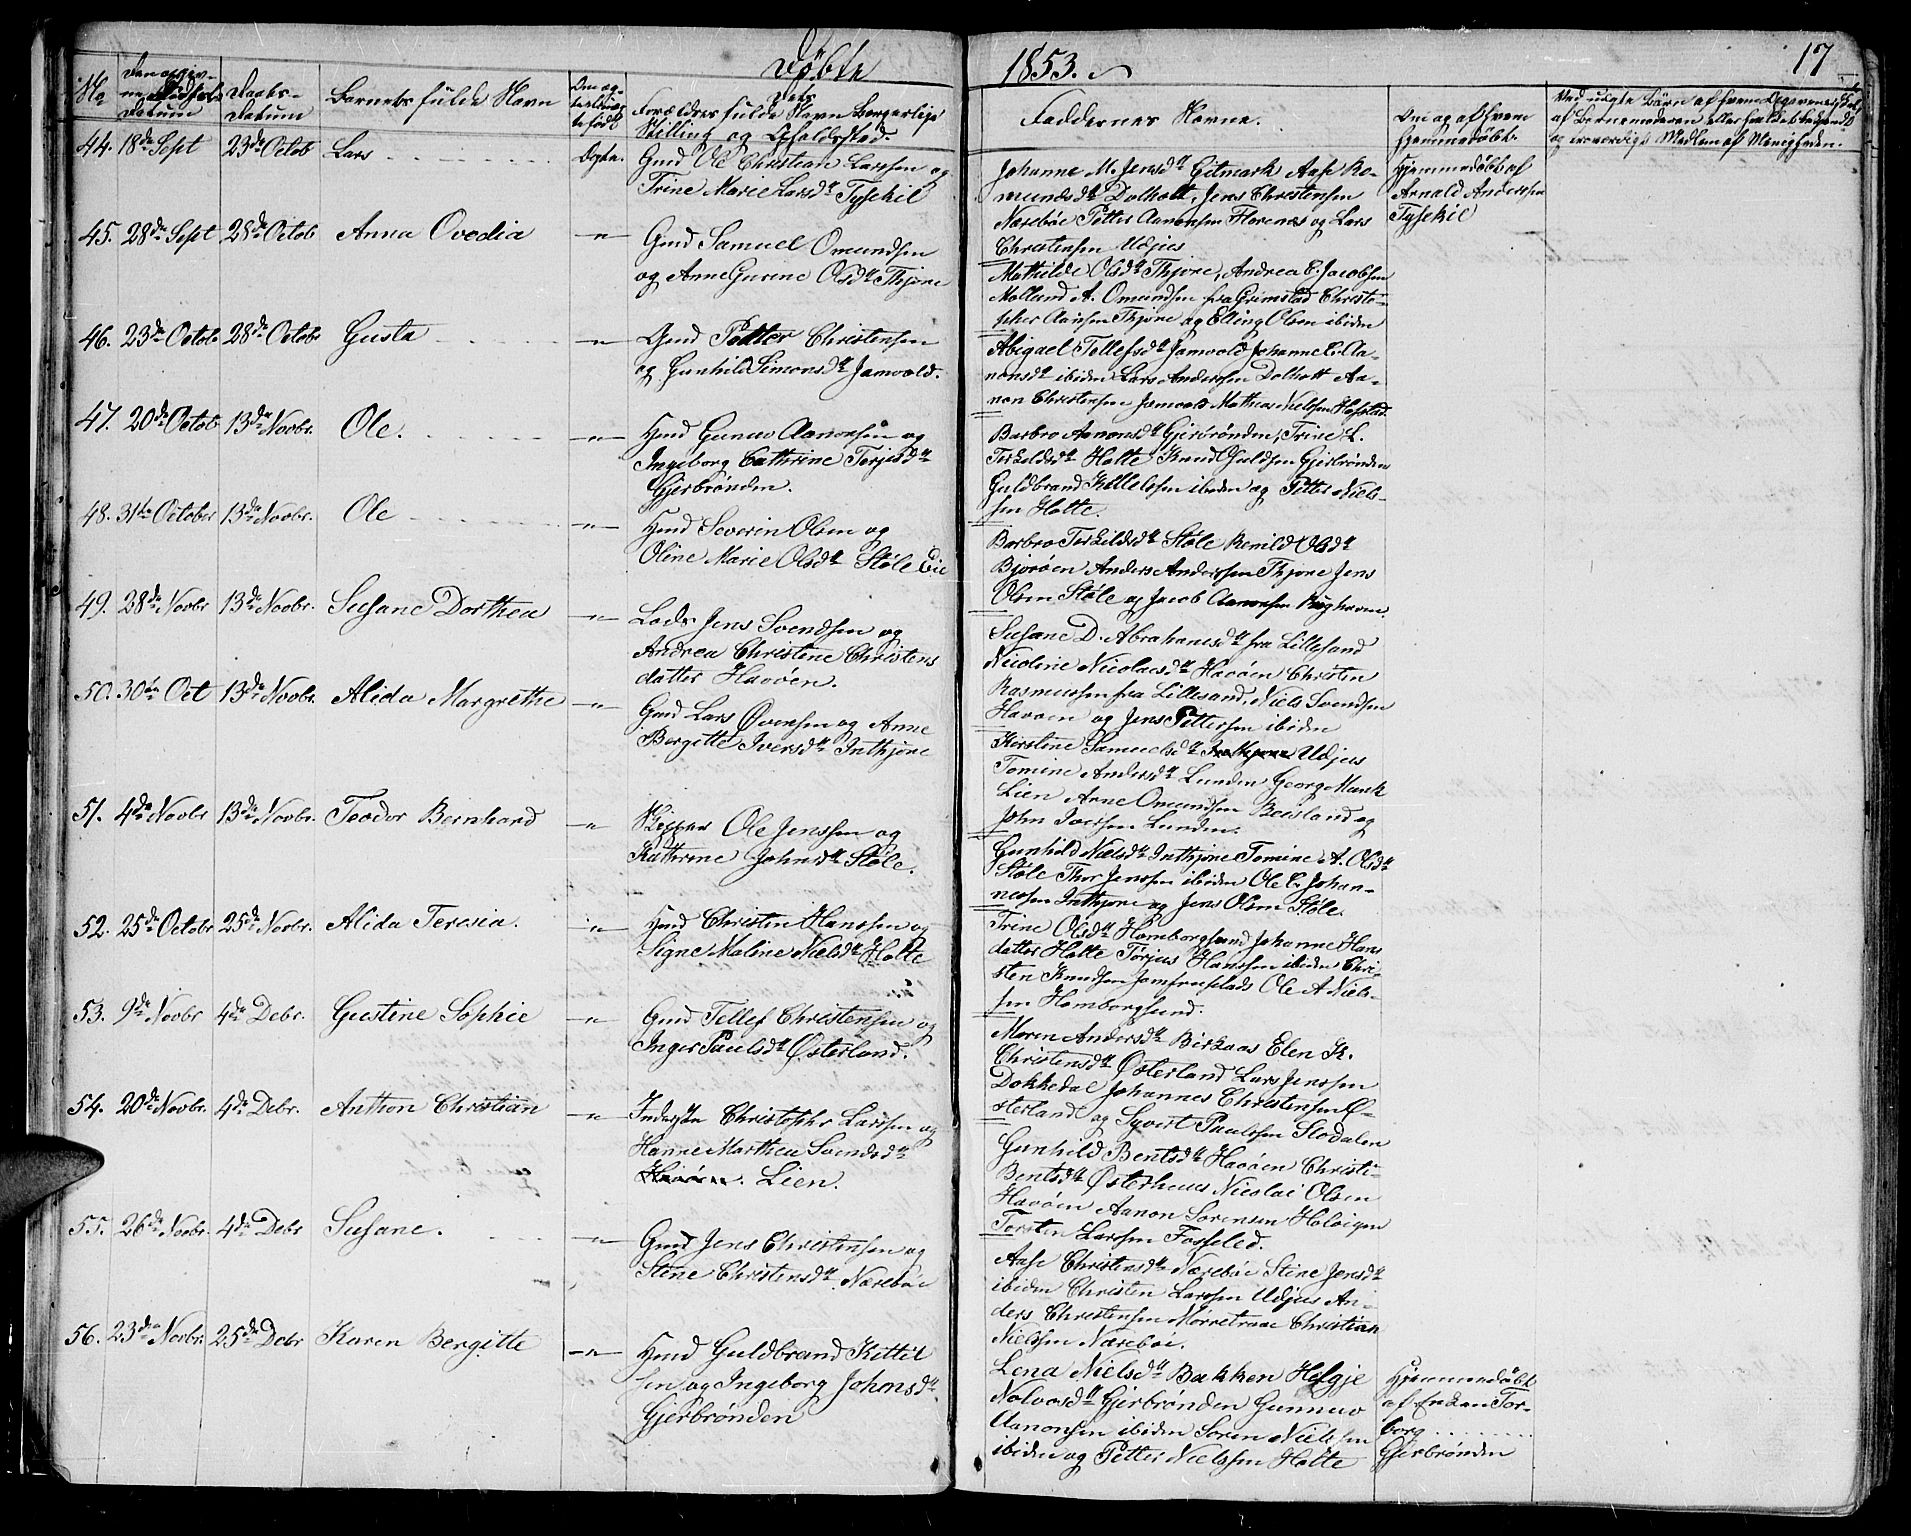 Døbte
1853.
17
No
Den opgiv-
ne Fødsels
Datum
Daabs-
Datum
Barnets fulde Navn
Om æg-
te eller uæg-
te født
Forældres fulde Navn Borgerlige
Stilling og Opholdssted.
Faddernes Navne.
Om og af hvem
hjemmedøbt.
44. 18de Sept 23de Octob Lars Ægte. Gmd Ole Christian Larssen og
Trine Marie Larsdtr Tysekil
Johanne M. Jensdtr Gitmark Aase Ro-
mundsdtr Dolholt, Jens Christensen
Næsebøe Petter Aanonsen Florenæs og Lars
Christensen Udjus
Hjemmedøbt af
Arnald Anderssen
Tysekil
45. 28de Sept 28de Octob Anna Ovedia -"- Gmd Samuel Omundsen
og Anne Gurine Olsdtr Thjøre
Mathilde Olsdtr Thjøre, Andrea E. Jacobsen
Molland A. Omundsen fra Grimstad Christo-
pher Aansen Thjøre og Elling Olsen ibiden
46. 23de Octob. 28de Octobr Gusta -"- Gmd Petter Christensen
og Gunhild Simonsdtr Jamvold.
Abigael Tellefsdtr Jamvold Johanne E. Aa-
nonsdtr ibiden Lars Anderssen Dolholt Aa-
non Christensen Jamvold Mathias Nielssen Hafstad.
47. 20de Octob 13de Novbr. Ole. -"- Hmd Gunuv Aanonsen og
Ingeborg Cathrine Terjesdtr
Gjerbrønden.
Barbro Aanonsdtr Gjerbrønden, Trine L.
Terkeldsdtr Holte Knud Guldsen Gjerbrønden
Guldbrand Killelssen ibiden og Petter Niels-
sen Holte.
48. 31te Octobr 13de Novbr. Ole -"- Hmd Severin Olsen og
Oline Marie Olsdtr Støle Eie
Barbro Terkeldsdtr Støle Renild Olsdtr
Bjorøen Anders Anderssen Thjøre Jens
Olsen Støle og Jacob Aanonsen Kughavn
49. 28de Novbr 13de Novbr. Susane Dorthea -"- Lods Jens Svendsen og
Andrea Christine Christens
datter Havøen.
Susane D. Abrahamsdtr fra Lillesand
Nicoline Nicolaisdtr Havøen Christen
Rasmussen fra Lillesand, Niels Svendsen
Havøen og Jens Pettersen ibiden
50. 30te Oct 13de Novbr. Alida Margrethe -"- Gmd Lars Øvensen og Anne
Bergitte Iversdtr Inthjøre
Kirstine Samuelsdtr Inthjøre Udjus
Tomine Andersdtr Lunden Georg Munk
Lien Arne Omundsen Beisland og
John Iversen Lunden.
51. 4de Novbr 13de Novbr. Teodor Bernhard -"- Skipper Ole Jenssen og
Kathrine Johnsdtr Støle.
Gunhild Nielsdtr Inthjøre Tomine A. Olsdtr
Støle Thor Jenssen ibiden Ole E. Johan-
nessen Inthjøre og Jens Olsen Støle.
52. 25de Octobr 25de Novbr. Alida Teresia. -"- Hmd Christen Hanssen og
Signe Maline Nielsdtr Holte
Trine Olsdtr Homborgsund Johanne Hans
datter Holte Torjus Hanssen ibiden Chri-
sten Knudsen Jomfrueslads Ole A Niels-
sen Homborgsund.
53. 9de Novbr 4de Debr. Gustine Sophie -"- Gmd Tellef Christensen og
Inger Paulsdtr Østerland.
Maren Andersdtr Birkaas Elen K.
Christensdtr Østerland Lars Jenssen
Dokkedal Johannes Christensen Ø-
sterland og Syvert Paulssen Stodalen
54. 20de Novbr. 4de Debr. Anthon Christian -"- Inderste Christopher Larssen og
Hanne Marthea Svendsdtr
Havøen. Lien.
Gunhild Bentsdtr Havøen Christi-
Bentsdtr Østerhuus Nicolai Olsen
Havøen Aanon Sorensen Holvigen
Tersten Larssen Fosseled.
55. 26de Novbr. 4de Debr Susane. -"- Gmd Jens Christensen og
Stine Christensdtr Næsebøe
Aase Christensdtr Næsebøe Stine Jensdtr
ibiden Christen Larssen Udjus An-
ders Christensen Mørretraae Christian
Nielssen Næsebøe.
56. 23de Novbr. 25de Debr Karen Bergitte -"- Hmd Guldbrand Kittil
sen og Ingeborg Johnsdtr
Gjerbrønden
Lena Nielsdtr Bakken Helgje
Nolvosdtr Gjerbrønden Gunnuv
Aanonsen ibiden Soren Nielssen
ibiden og Petter Nielssen Holte
Hjemmedøbt
af Enken Tor-
borg
Gjerbrønden